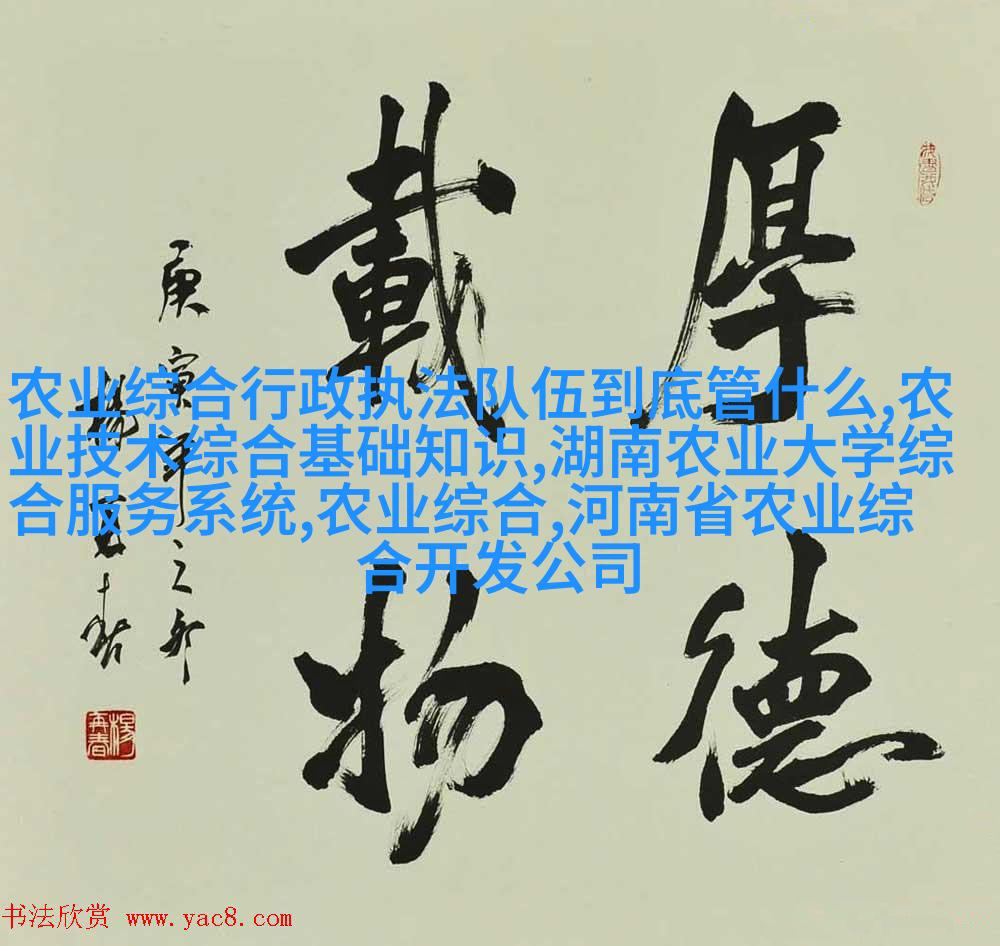 厚德
載物
庚寅年之部
楊再春
楊再春
农业综合行政执法队伍到底管什么,农
业技术综合基础知识,湖南农业大学综
合服务系统,农业综合,河南省农业综
合开发公司
书法欣赏 www.yac8.com